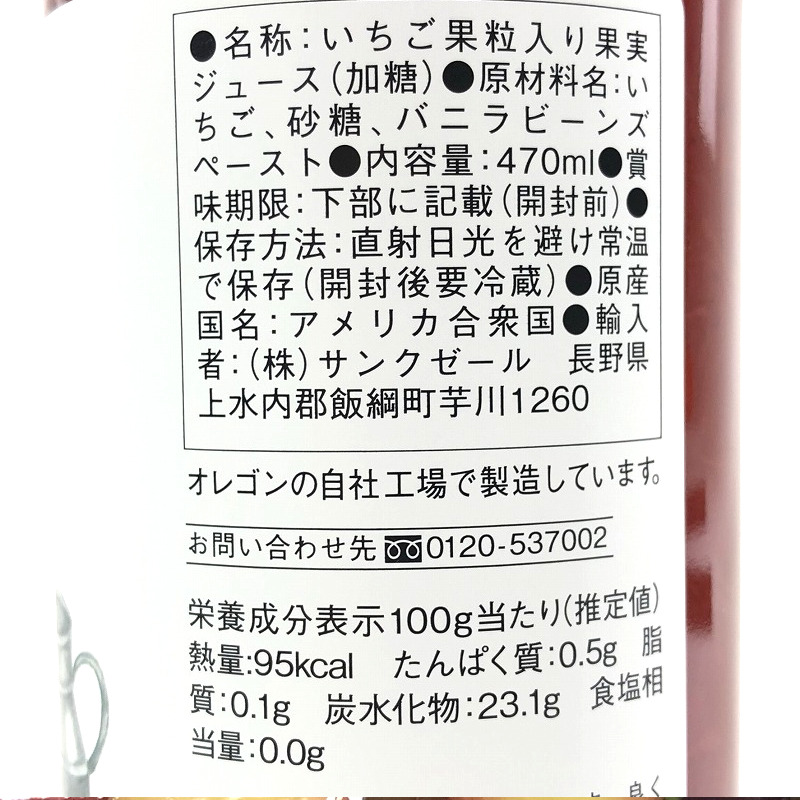 ●名称：いちご果粒入り果実
ジュース（加糖）●原材料名：い
ちご、砂糖、バニラビーンズ
ペースト●内容量：470ml●賞
味期限：下部に記載（開封前）●
保存方法：直射日光を避け常温
で保存（開封後要冷蔵）●原産
国名：アメリカ合衆国●輸入
者：（株）サンクゼール　長野県
上水内郡飯綱町芋川1260
オレゴンの自社工場で製造しています。
お問い合わせ先 0120-537002
栄養成分表示100g当たり（推定値）
熱量:95kcal　たんぱく質：0.5g　脂
質：0.1g　炭水化物：23.1g　食塩相
当量：0.0g